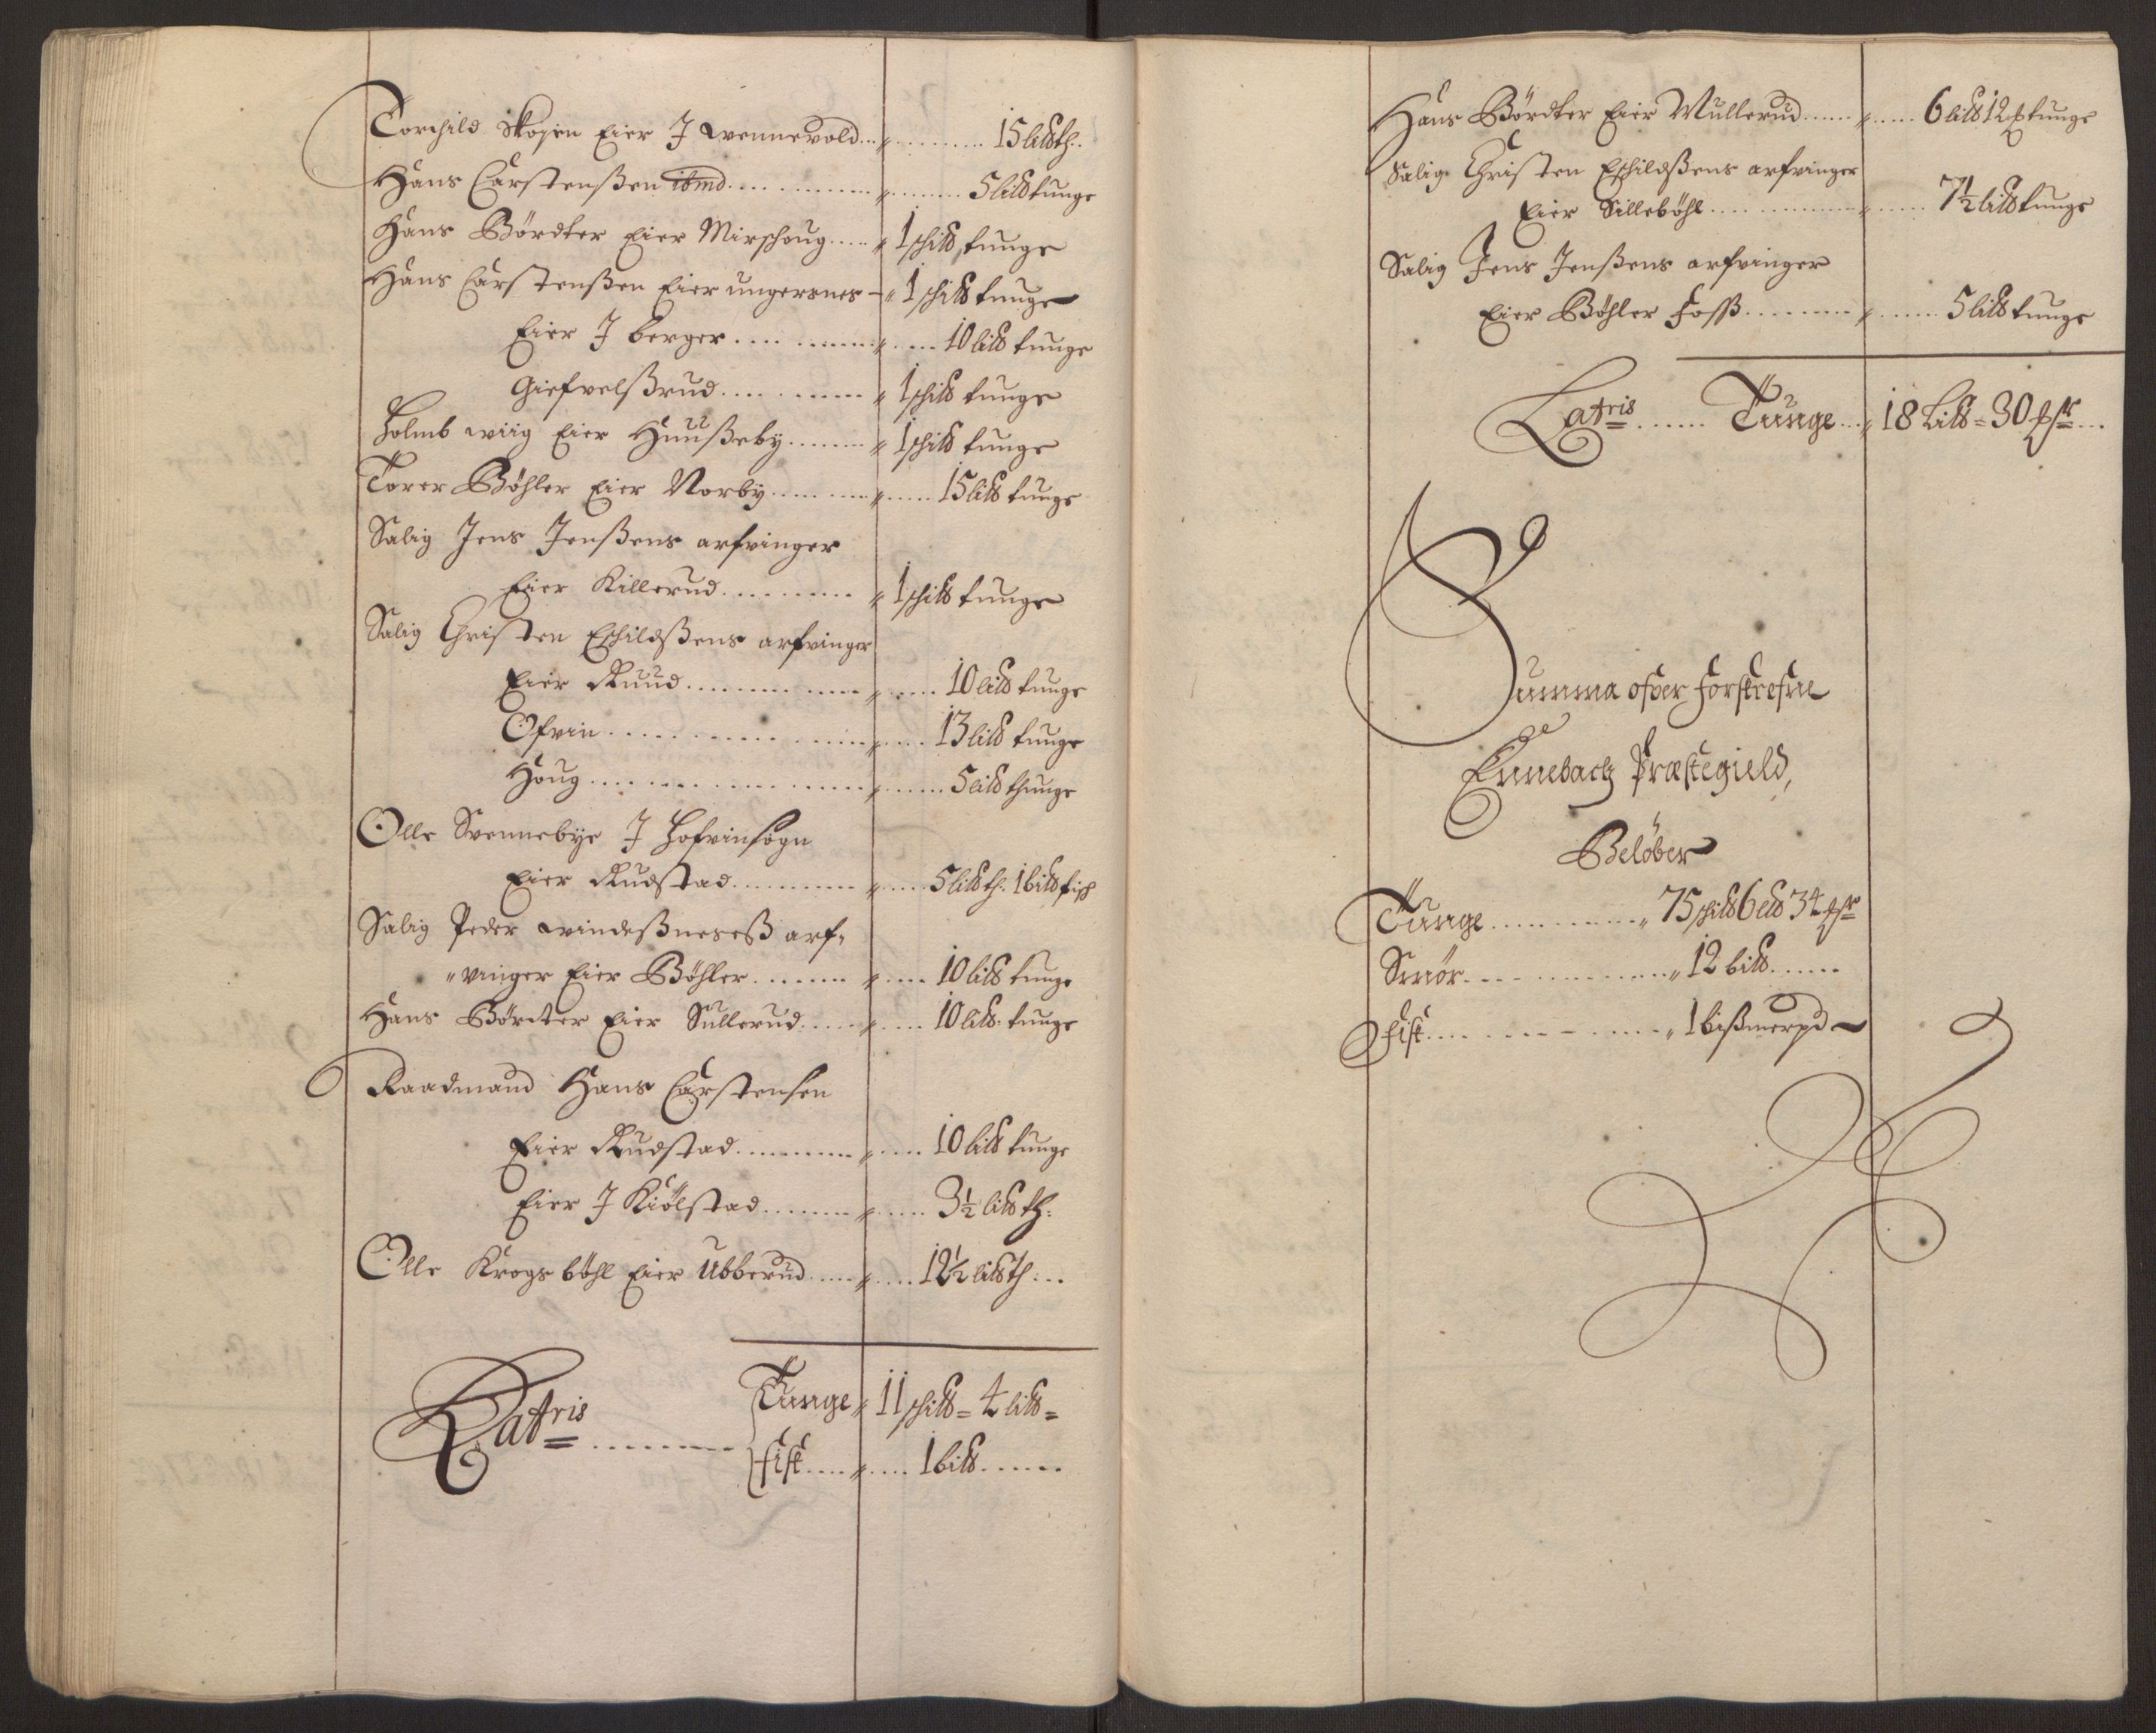 Torchild Skosen Eier J Qvennevold ... 15 lild th:
Hans Carstenßen ibmd ... 5 lild tunge
Hans Bördter Eier Mirschoug ... 1 schild tunge
Hans Carstenßen Eier ungersnes - 1 schild tunge
Eier J berger ... 10 lild tunge
Giefvelßrud ... 1 schild tunge
Holmb wiig Eier Huußeby ... 1 schild tunge
Torer Böhler Eier Norby ... 15 lild tunge
Salig Jens Jenßens arfvinger
Eier Killerud ... 1 schild tunge
Salig Christen Eschildßens arfvinger
Eier Ruud ... 10 lild tunge
Ofvin ... 13 lild tunge
Houg ... 5 lild thunge
Olle Svennebye J Hofvinsogn
Eier Rudstad ... 5 lild th: 1 bild fisch
Salig Peder Qvindeßneseß arf-
vinger Eier Böhler ... 10 lild tunge
Hans Bördter Eier Sullerud ... 10 lild. tunge
Raadmand Hans Carstensen
Eier Rudstad ... 10 lild tunge
Eier J Kiölstad ... 3½ lild th:
Olle Krogsböhl Eier Ubberud ... 12½ lild Th ...
Latris ... Tunge 11 schild = 4 lild =
fisk ... 1 bild ...
Hans Bördter Eier Mullerud ... 6 lild 12 tunge
Salig Christen Eschildßens arfvinger
Eier Silleböhl ... 7½ lild tunge
Salig Jens Jenßens arfvinger
Eier Böhler Foss ... 5 lild tunge
Latris ... Tunge ... 18 Lild = 30 ...
Summa ofver forskrefne
Ennebach Præstegield,
Belöber
Tunge ... 75 schild 6 lild 34
Smör ... 12 bild ...
Fisk ... 1 bißmerpd